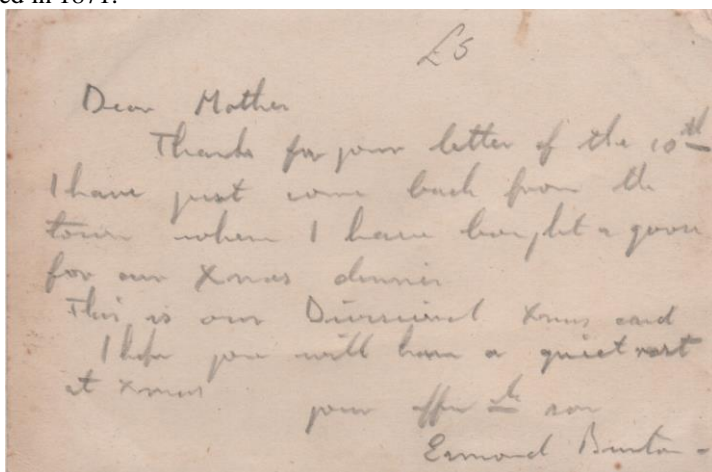 ed in 1871.
£5
Dear Mother
Thanks for your letter of the 10th
I have just come back from the
town where I have bought a goose
for our Xmas dinner
This is our Divisional Xmas card
I hope you will have a quiet rest
at Xmas
your affec te son
Esmond Burton -